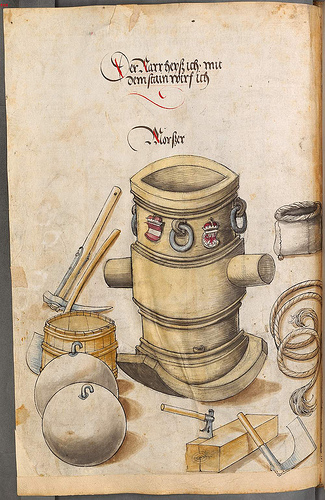 Der Narr heyß ich · mit
dem stain wirf ich
Morßer